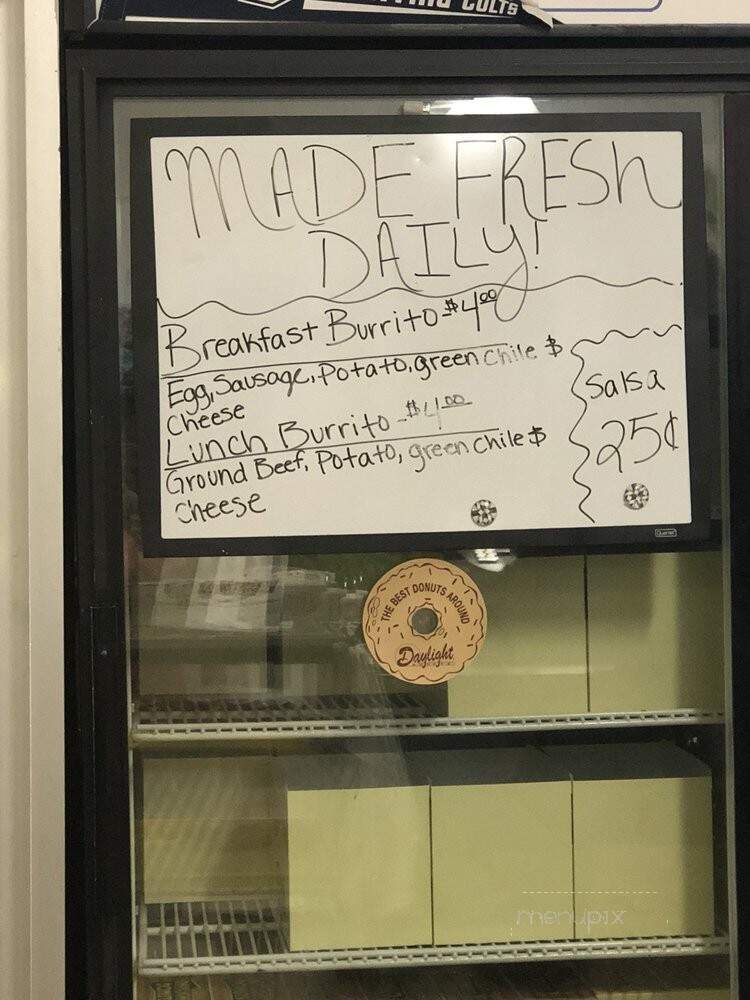 COLTS
MADE FRESH
DAILY!
Breakfast Burrito $4.00
Egg, Sausage, Potato, green chile $
Cheese
Lunch Burrito $4.00
Ground Beef, Potato, green chile $
Cheese
Salsa
25¢
Quartet
THE BEST DONUTS AROUND
Daylight
menupix